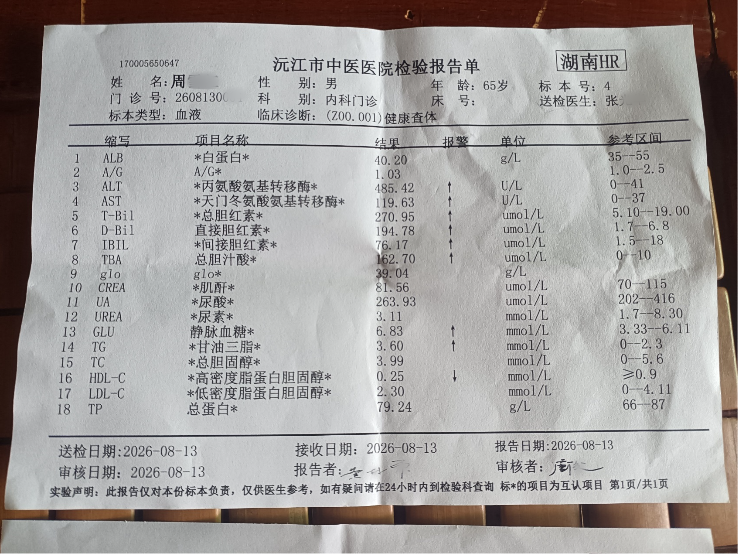 170005650647
沅江市中医医院检验报告单
湖南HR
姓 名:周 性 别:男 年 龄:65岁 标 本 号:4
门 诊 号:2608130 科 别:内科门诊 床 号: 送检医生:张
标本类型:血液 临床诊断:(Z00.001)健康查体
缩写 项目名称 结果 报警 单位 参考区间
1 ALB *白蛋白* 40.20 g/L 35--55
2 A/G A/G* 1.03 1.0--2.5
3 ALT *丙氨酸氨基转移酶* 485.42 ↑ U/L 0--41
4 AST *天门冬氨酸氨基转移酶* 119.63 ↑ U/L 0--37
5 T-Bil *总胆红素* 270.95 ↑ umol/L 5.10--19.00
6 D-Bil 直接胆红素* 194.78 ↑ umol/L 1.7--6.8
7 IBIL *间接胆红素* 76.17 ↑ umol/L 1.5--18
8 TBA 总胆汁酸* 162.70 ↑ umol/L 0--10
9 glo glo* 39.04 g/L
10 CREA *肌酐* 81.56 umol/L 70--115
11 UA *尿酸* 263.93 umol/L 202--416
12 UREA *尿素* 3.11 mmol/L 1.7--8.30
13 GLU 静脉血糖* 6.83 ↑ mmol/L 3.33--6.11
14 TG *甘油三脂* 3.60 ↑ mmol/L 0--2.3
15 TC *总胆固醇* 3.99 mmol/L 0--5.6
16 HDL-C *高密度脂蛋白胆固醇* 0.25 ↓ mmol/L ≥0.9
17 LDL-C *低密度脂蛋白胆固醇* 2.30 mmol/L 0--4.11
18 TP 总蛋白* 79.24 g/L 66--87
送检日期:2026-08-13 接收日期: 2026-08-13 报告日期:2026-08-13
审核日期: 2026-08-13 报告者: 审核者:
实验声明: 此报告仅对本份标本负责, 仅供医生参考, 如有疑问请在24小时内到检验科查询 标*的项目为互认项目 第1页/共1页